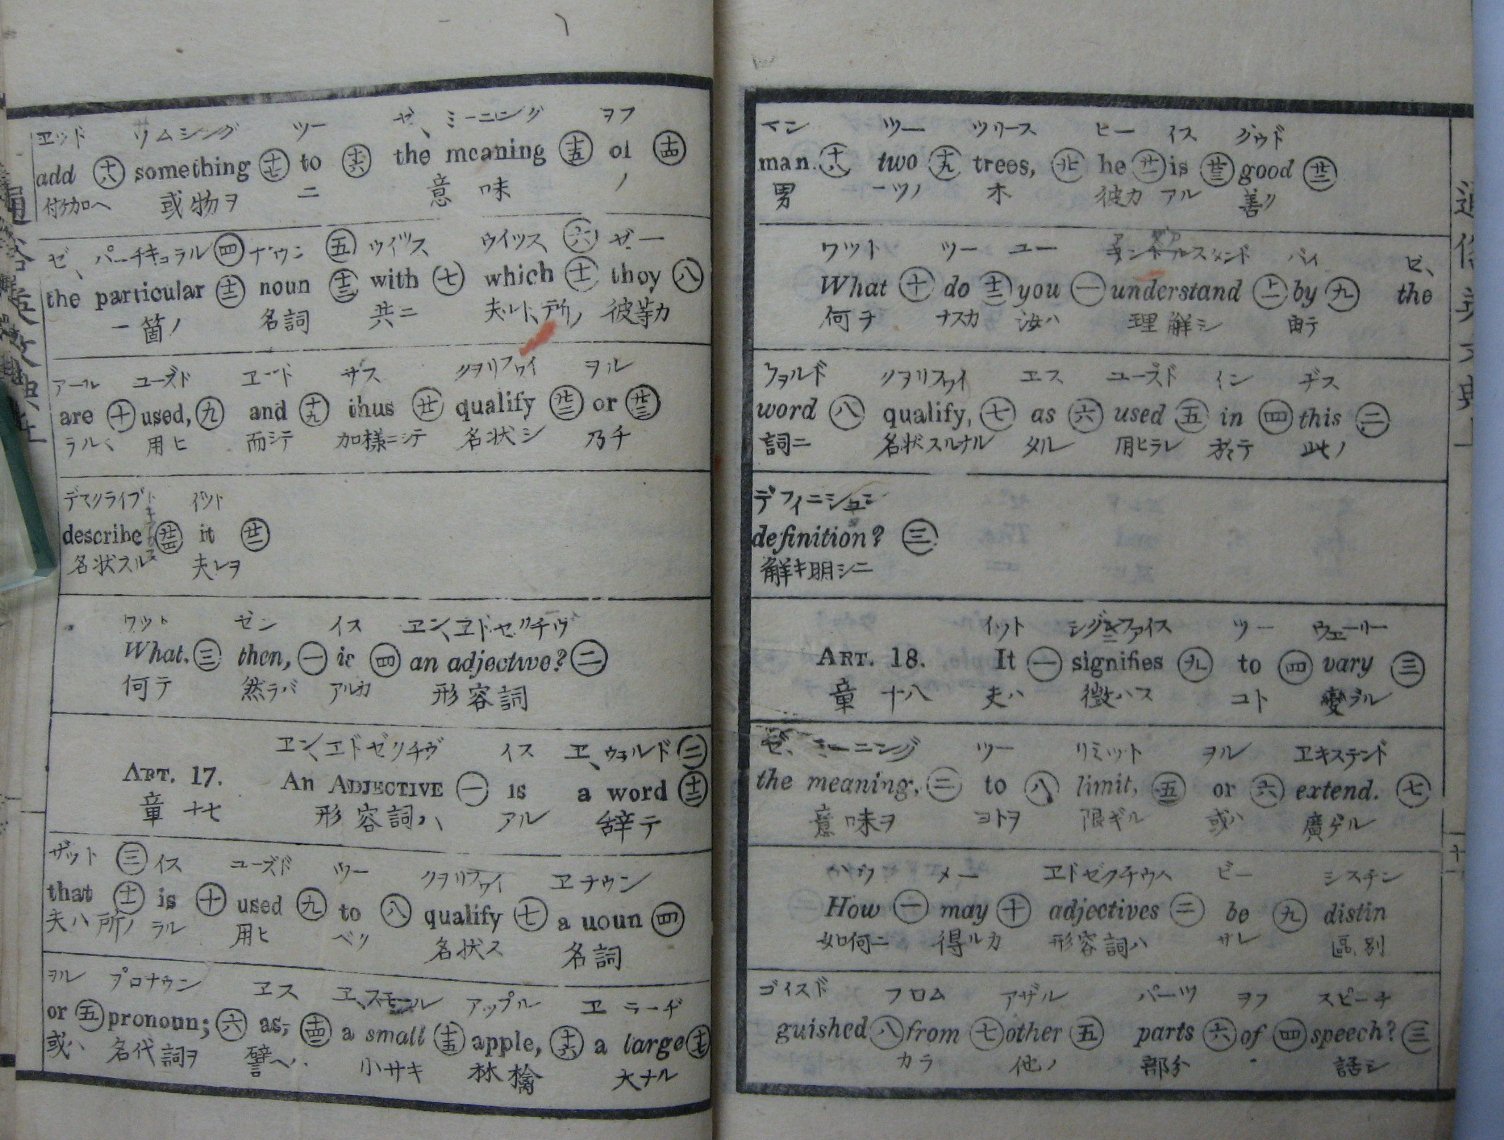 ヱッド サムシング ツー ゼ、ミーニング ヲフ
add 十八 something 十七 to 十六 the meaning 十五 of 十四
付ケ加ヘ 或物ヲ ニ 意味 ノ
ゼ、パーチキュラル 四 ナウン 五 ウイヅス ウイッス 六 ゼー
the particular 十二 noun 十三 with 七 which 十一 they 八
一箇ノ 名詞 共ニ 夫レト、所ノ 彼等カ
アール ユーズド ヱンド ザス クヲリファイ ヲル
are 十 used, 九 and 十九 thus 廿 qualify 廿二 or 廿三
ラル、 用ヒ 而シテ 加様ニシテ 名状シ 乃チ
デスクライブ イット
describe 廿四 it 廿一
名状スル 夫レヲ
ワット ゼン イス ヱン、ヱドゼクチヴ
What, 三 then, 一 is 四 an adjective? 二
何テ 然ラバ アルカ 形容詞
ヱン、ヱドゼクチヴ イス ヱ、ウォルド 二
ART. 17. An ADJECTIVE 一 is a word 十二
章 十七 形容詞ハ、 アル 辞テ
ザット 三 イス ユーズド ツー クヲリファイ ヱナウン
that 十一 is 十 used 九 to 八 qualify 七 a noun 四
夫ハ所ノ ラル 用ヒ ベク 名状ス 名詞
ヲル プロナウン ヱス ヱ、スモール アップル ヱ ラーヂ
or 五 pronoun; 六 as, 十四 a small 十五 apple, 十六 a large 十七
或ハ 名代詞ヲ 譬ヘハ 小サキ 林檎 大ナル
マン ツー ツリース ヒー イス グウド
man. 十八 two 十九 trees, 廿 he 廿一 is 廿三 good 廿二
男 二ツノ 木 彼カ アル 善ク
ワット ツー ユー アンドルスタンド バイ ゼ、
What 十 do 十二 you 一 understand 十一 by 九 the
何ヲ ナスカ 汝ハ 理解シ 由テ
ウヲルド クヲリファイ ヱス ユーズド イン ヂス
word 八 qualify, 七 as 六 used 五 in 四 this 二
詞ニ 名状スルナル タル 用ヒラレ 於テ 此ノ
デフィニション
definition? 三
解キ明シニ
イット シグニファイス ツー ウェーリー
ART. 18. It 一 signifies 九 to 四 vary 三
章 十八 夫ハ 徴ハス コト 變ヲル
ゼ、ミーニング ツー リミット ヲル ヱキステンド
the meaning, 二 to 八 limit, 五 or 六 extend. 七
意味ヲ コトヲ 限ギル 或ハ 廣ゲル
ハウ メー ヱドゼクチウヘ ビー シスチン
How 一 may 十 adjectives 二 be 九 distin
如何ニ 得ルカ 形容詞ハ サレ 區別
ゴイスド フロム アザル パーツ ヲフ スピーチ
guished 八 from 七 other 五 parts 六 of 四 speech? 三
カラ 他ノ 部分 語シ